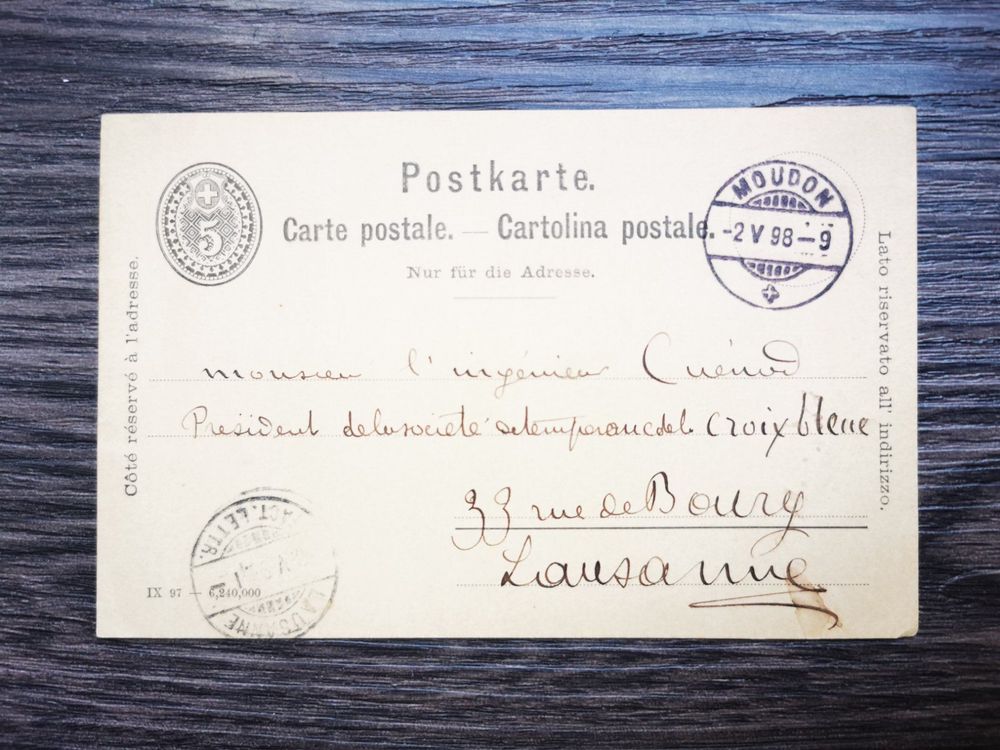 5
Postkarte.
Carte postale. — Cartolina postale.
Nur für die Adresse.
MOUDON
-2 V 98-9
Côté réservé à l'adresse.
Lato riservato all' indirizzo.
monsieur l'ingénieur Cuénod
Président de la société de tempérance de la Croix bleue
33 rue de Bourg
Lausanne
FACT. LETTR.
LAUSANNE
IX 97 — 6,240,000